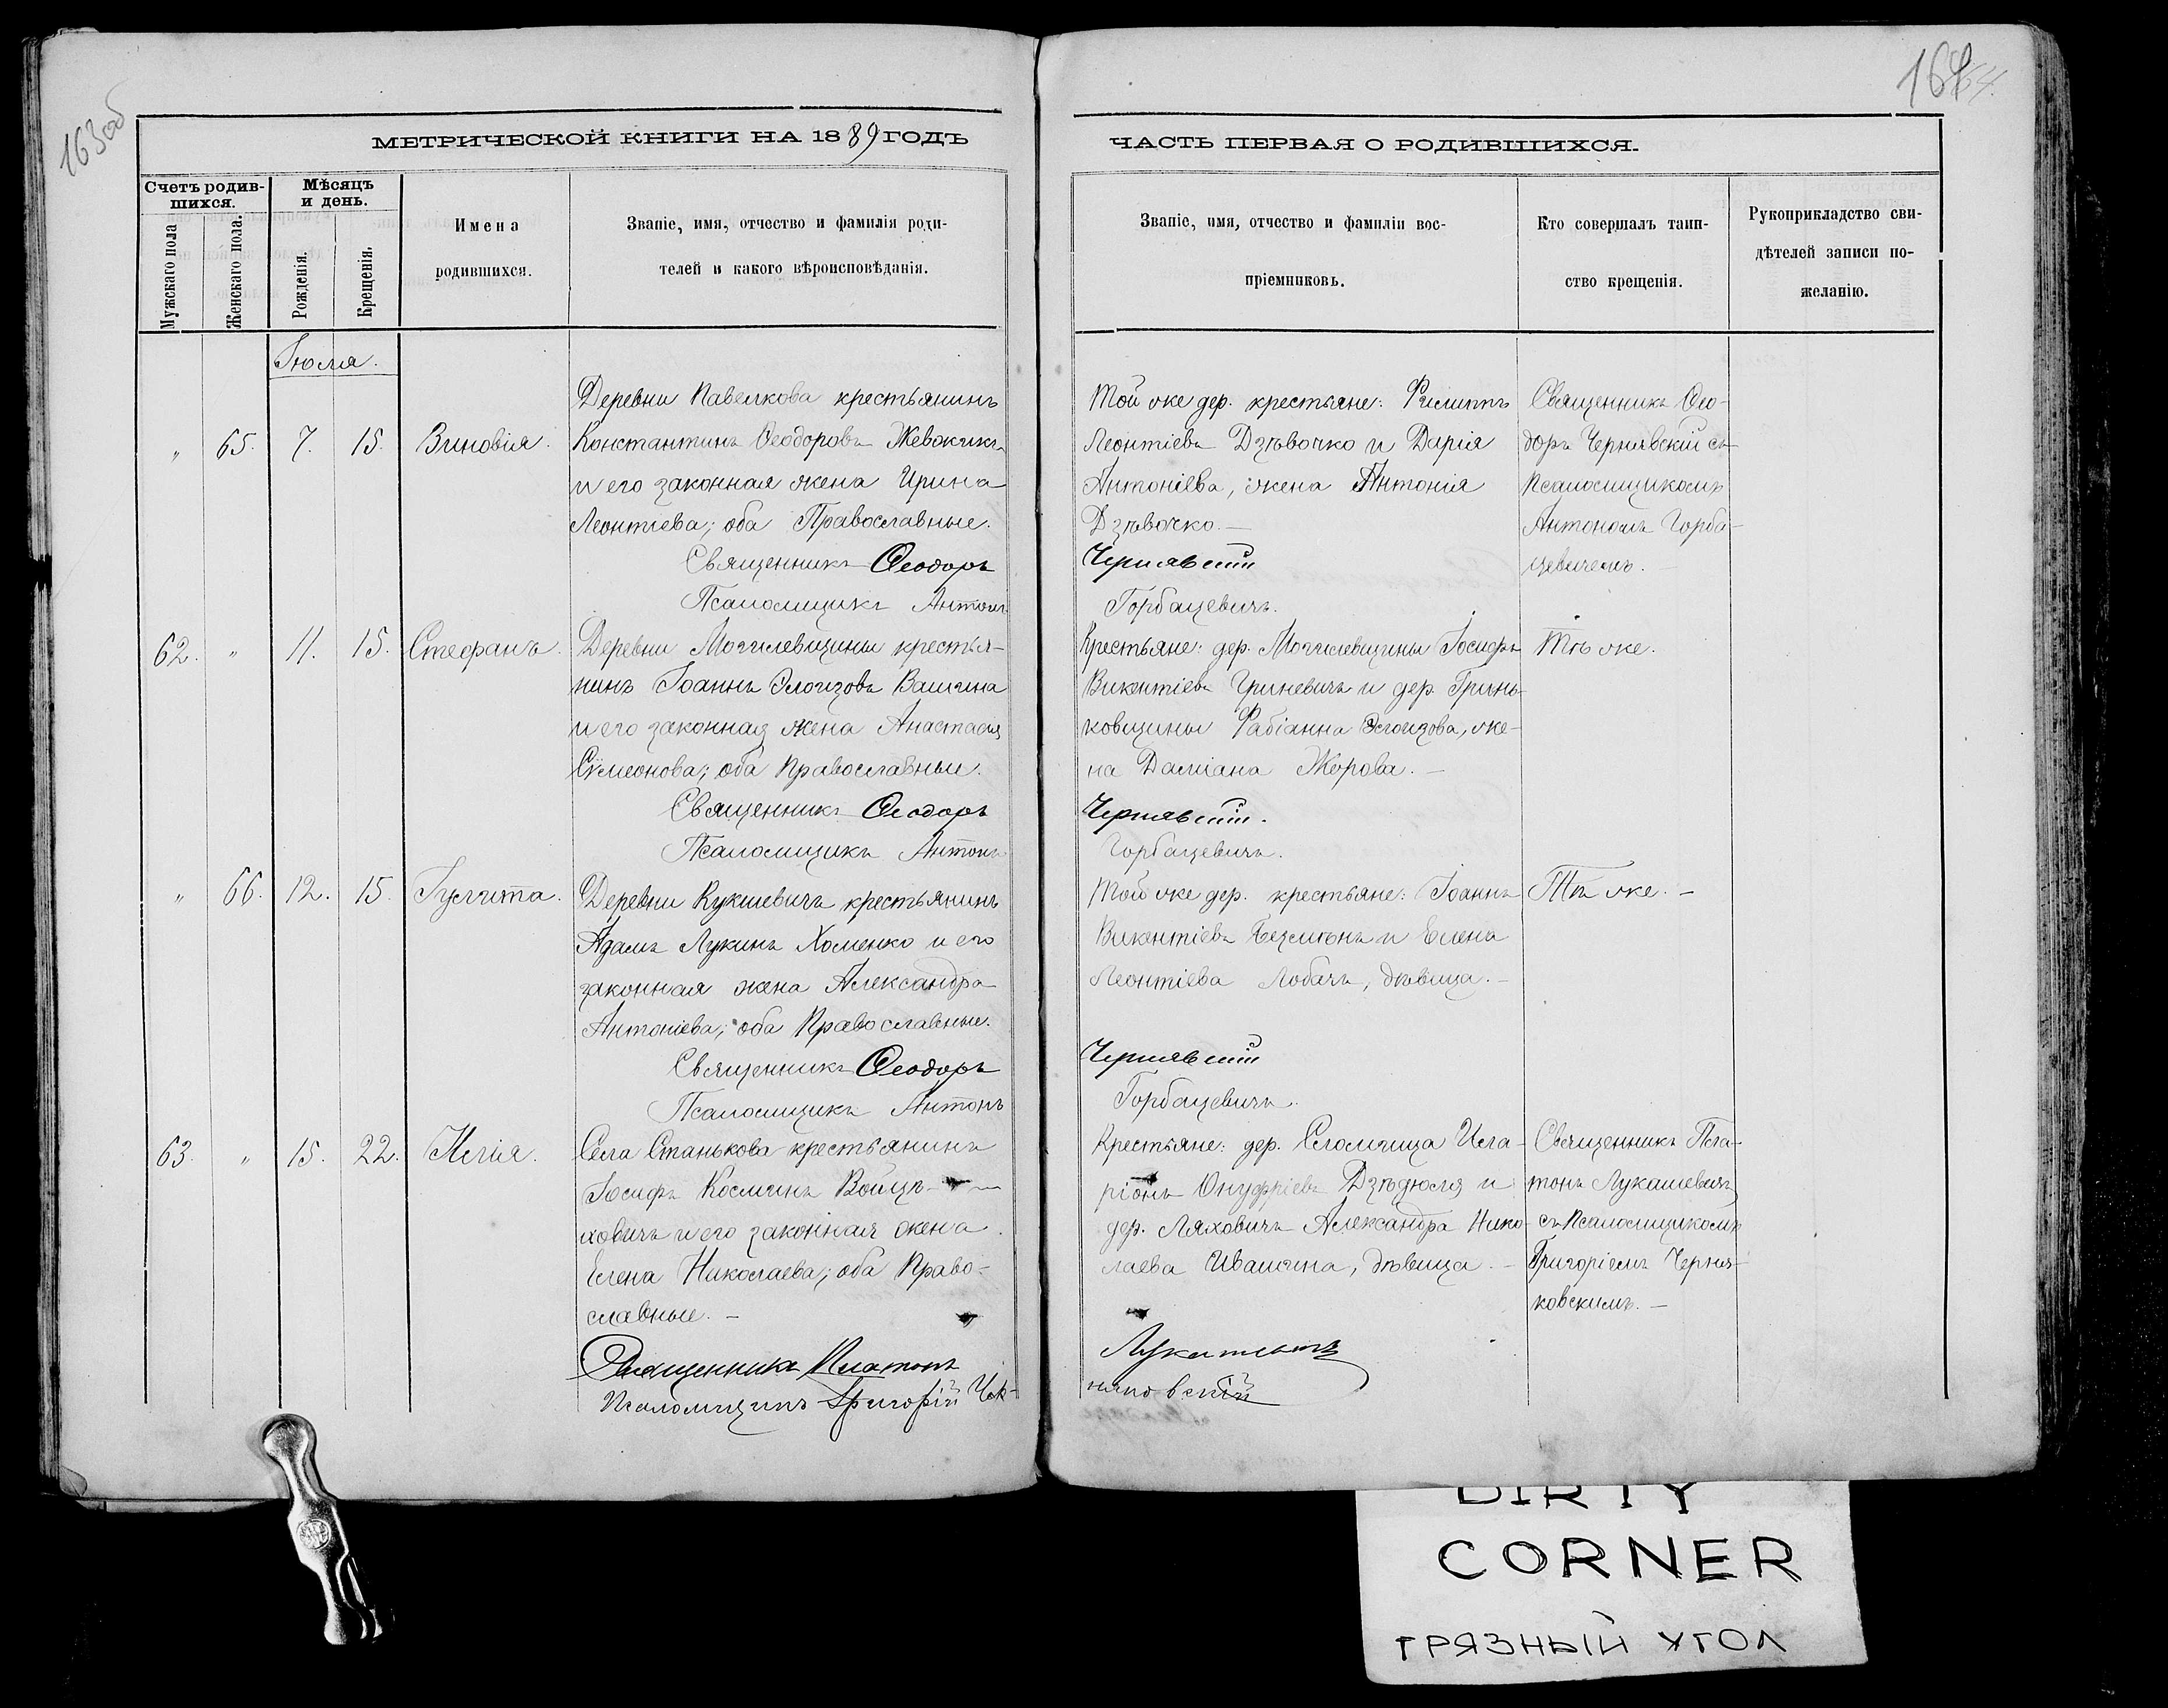 163об
164
164.
МЕТРИЧЕСКОЙ КНИГИ НА 1889 ГОДЪ
ЧАСТЬ ПЕРВАЯ О РОДИВШИХСЯ.
Счетъ родив-
шихся.
Мужскаго пола
Женскаго пола.
Мѣсяцъ
и день.
Рожденія.
Крещенія.
Имена
родившихся.
Званіе, имя, отчество и фамилія роди-
телей и какого вѣроисповѣданія.
Званіе, имя, отчество и фамиліи вос-
пріемниковъ.
Кто совершалъ таин-
ство крещенія.
Рукоприкладство сви-
дѣтелей записи по-
желанію.
Іюля.
„ 65. 7. 15. Зиновія.
Деревни Павелкова крестьянинъ
Константинъ Ѳеодоровъ
и его законная жена Ирина
Леонтіева; оба Православные.
Священникъ Ѳеодоръ
Псаломщикъ Антонъ
Той же дер. крестьяне: Филиппъ
Леонтіевъ Дзѣвочко и Дарія
Антоніева, жена Антонія
Дзѣвочко. —
Чернявскій
Горбацевичъ.
Священникъ Ѳео-
доръ Чернявскій съ
Псаломщикомъ
Антономъ Горба-
цевичемъ. —
62. „ 11. 15. Стефанъ.
Деревни Могилевщины крестья-
нинъ Іоаннъ Элоизовъ Вашкина
и его законная жена Анастасія
Сѵмеонова; оба Православные.
Священникъ Ѳеодоръ
Псаломщикъ Антонъ
Крестьяне: дер. Могилевщины Іосифъ
Викентіевъ Гриневичъ и дер. Гринь-
ковщины Фабіанна Элоизова, же-
на Даміана Жорова. —
Чернявскій.
Горбацевичъ.
Тѣ же.
„ 66. 12. 15. Іулитта.
Деревни Кукшевичъ крестьянинъ
Адамъ Лукинъ Хоменко и его
законная жена Александра
Антоніева; оба Православные.
Священникъ Ѳеодоръ
Псаломщикъ Антонъ
Той же дер. крестьяне: Іоаннъ
Викентіевъ и Елена
Леонтіева Лобачъ, дѣвица. —
Чернявскій
Горбацевичъ.
Тѣ же. —
63. „ 15. 22. Илія.
Села Станькова крестьянинъ
Іосифъ Косминъ Войцъ-
ховичъ и его законная жена
Елена Николаева; оба Право-
славные. —
Священникъ Платонъ
Псаломщикъ Григорій Чер-
Крестьяне: дер. Сломчица Ила-
ріонъ Онуфріевъ Дзѣдюля и
дер. Ляховичъ Александра Нико-
лаева Ивашина, дѣвица. —
Лукашевичъ
няковскій
Священникъ Пла-
тонъ Лукашевичъ
съ Псаломщикомъ
Григоріемъ Черня-
ковскимъ. —
DIRTY
CORNER
ГРЯЗНЫЙ УГОЛ